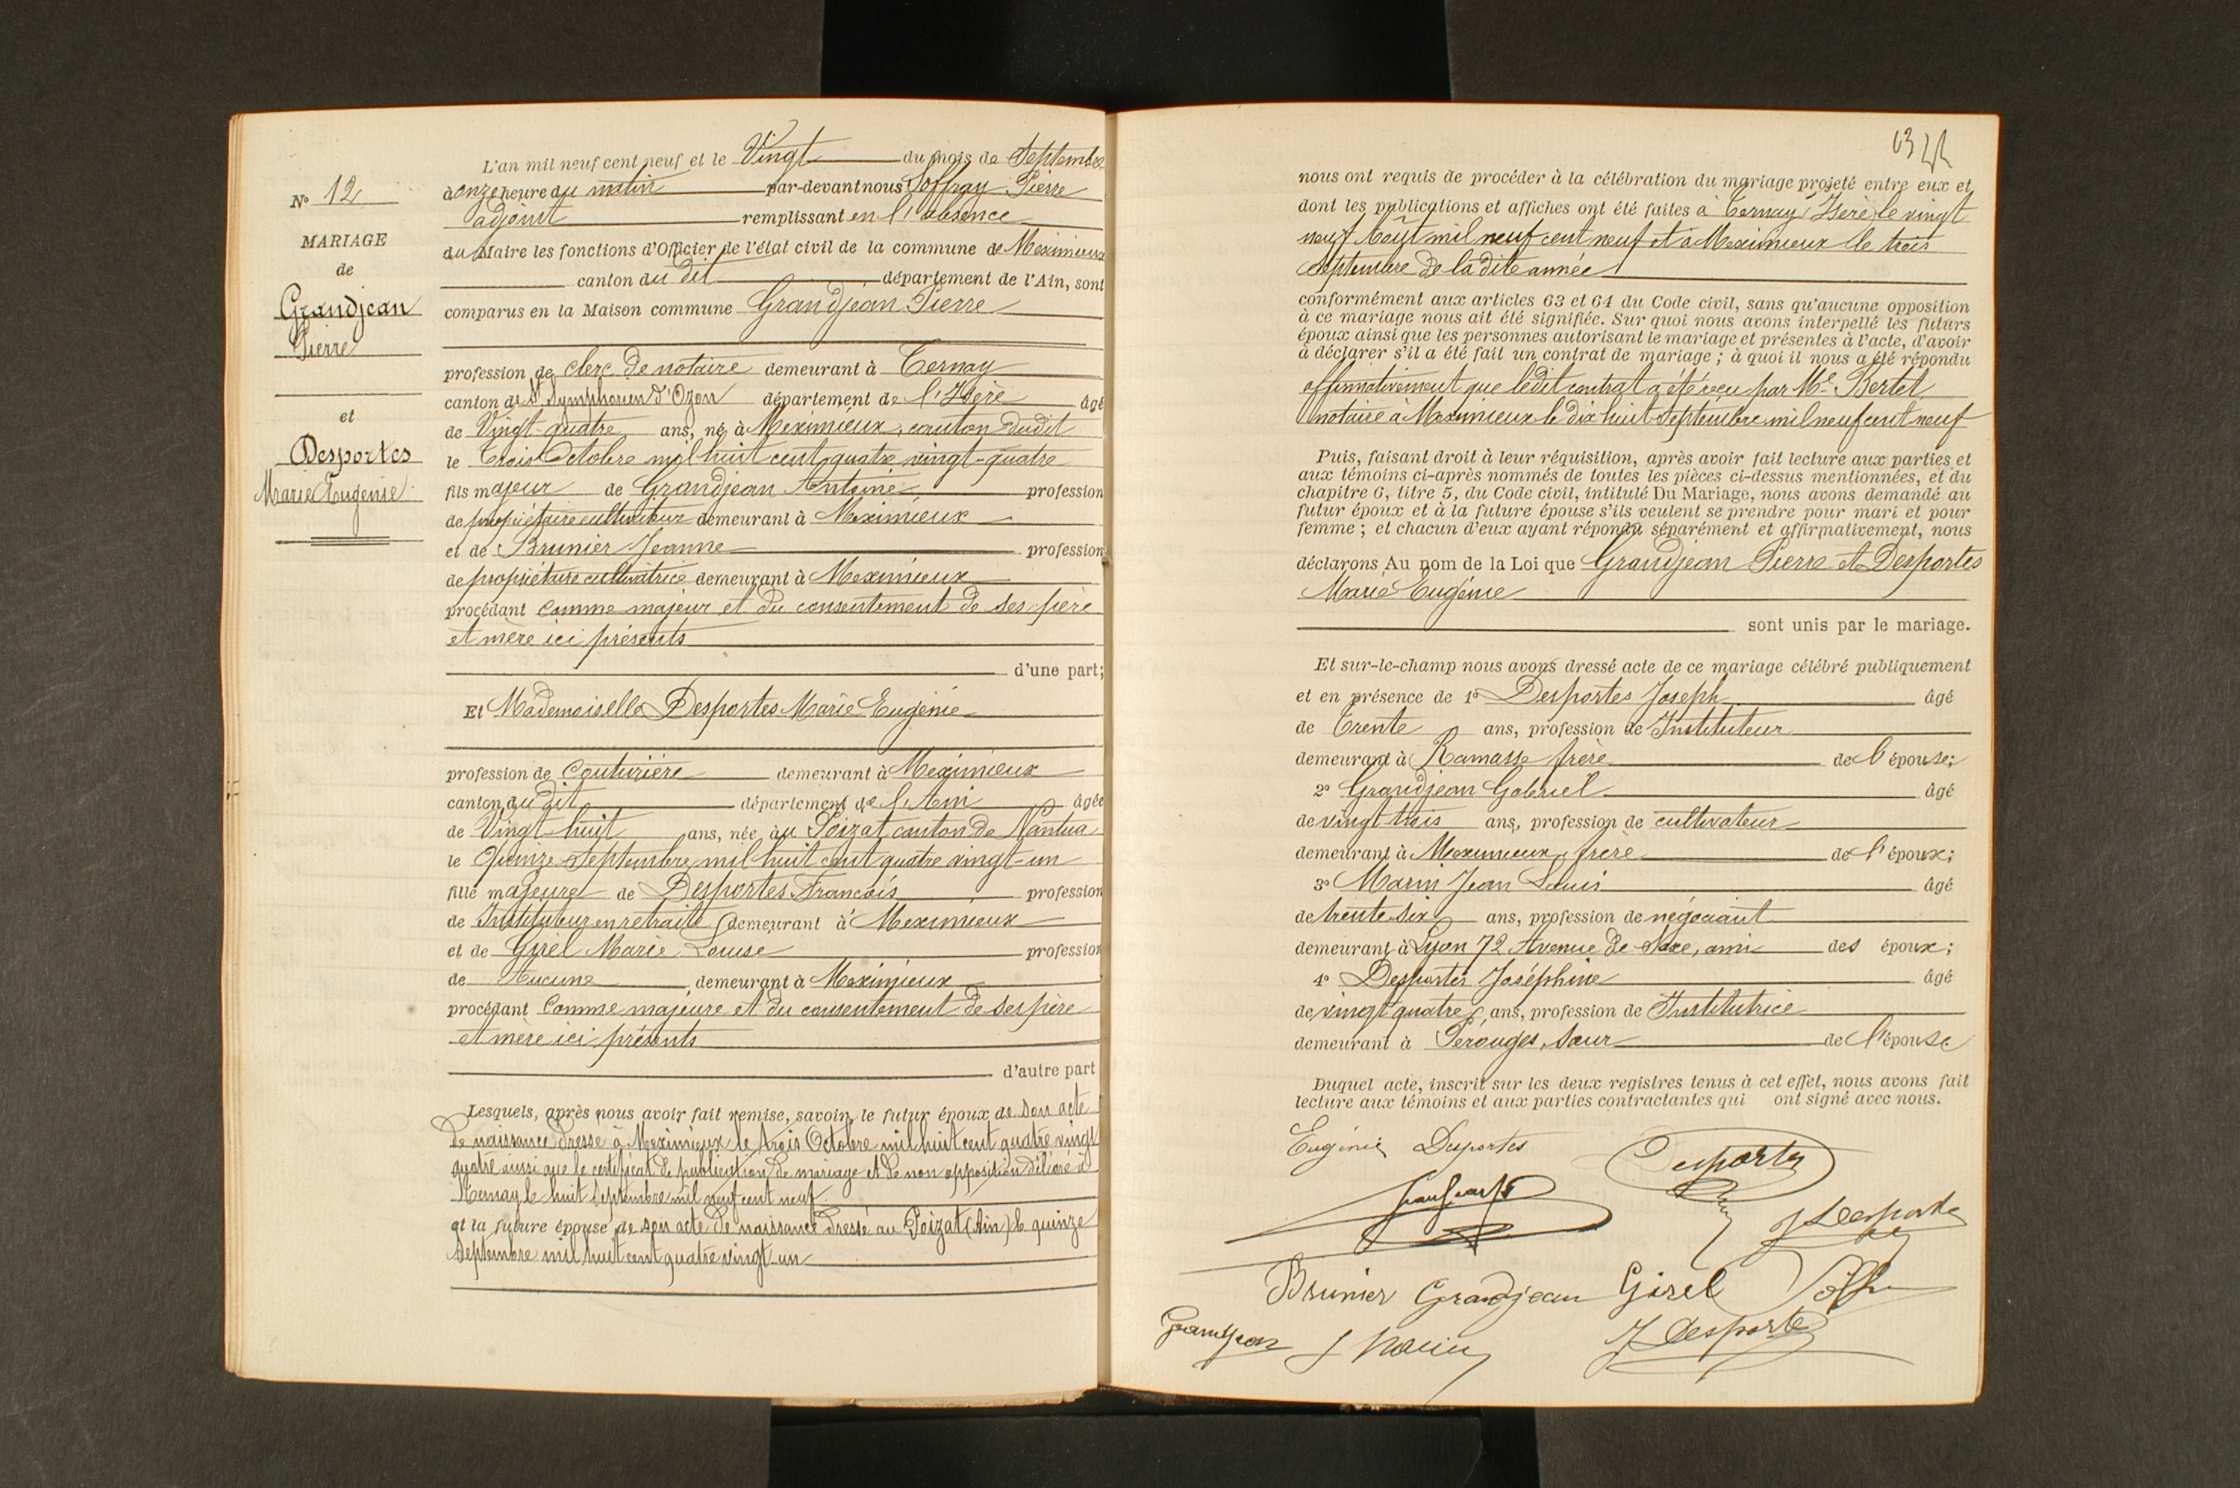 L'an mil neuf cent neuf et le Vingt du mois de Septembre
à onze heure du matin par-devant nous Soffray Pierre
adjoint remplissant en l'absence
du Maire les fonctions d'Officier de l'état civil de la commune de Meximieux
canton du dit département de l'Ain, sont
comparus en la Maison commune Grandjean Pierre
profession de clerc de notaire demeurant à Ternay
canton de St Symphorien d'Ozon département de l'Isère âgé
de Vingt-quatre ans, né à Meximieux, canton dudit
le Trois Octobre mil huit cent quatre vingt-quatre
fils majeur de Grandjean Antoine profession
de propriétaire cultivateur demeurant à Meximieux
et de Brunier Jeanne profession
de propriétaire cultivatrice demeurant à Meximieux
procédant comme majeur et du consentement de ses père
et mère ici présents
d'une part;
Et Mademoiselle Desportes Marie Eugénie
profession de Couturière demeurant à Meximieux
canton du dit département de l'Ain âgée
de Vingt-huit ans, née au Poizat canton de Nantua
le Quinze Septembre mil huit cent quatre vingt-un
fille majeure de Desportes Francois profession
de Instituteur en retraite demeurant à Meximieux
et de Girel Marie Louise profession
de Aucune demeurant à Meximieux
procédant Comme majeure et du consentement de ses père
et mère ici présents
d'autre part
Lesquels, après nous avoir fait remise, savoir, le futur époux de son acte
de naissance dressé à Meximieux le trois Octobre mil huit cent quatre vingt
quatre ainsi que le certificat de publication de mariage et de non opposition délivré à
Ternay le huit Septembre mil neuf cent neuf
et la future épouse de son acte de naissance dressé au Poizat (Ain) le quinze
Septembre mil huit cent quatre vingt-un
No 12
MARIAGE
de
Grandjean
Pierre
et
Desportes
Marie Eugénie
nous ont requis de procéder à la célébration du mariage projeté entre eux et
dont les publications et affiches ont été faites à Ternay Isère le vingt
neuf Août mil neuf cent neuf et à Meximieux le trois
septembre de la dite année
conformément aux articles 63 et 64 du Code civil, sans qu'aucune opposition
à ce mariage nous ait été signifiée. Sur quoi nous avons interpellé les futurs
époux ainsi que les personnes autorisant le mariage et présentes à l'acte, d'avoir
à déclarer s'il a été fait un contrat de mariage ; à quoi il nous a été répondu
affirmativement que ledit contrat a été reçu par Me Bertet
notaire à Meximieux le dix huit Septembre mil neuf cent neuf
Puis, faisant droit à leur réquisition, après avoir fait lecture aux parties et
aux témoins ci-après nommés de toutes les pièces ci-dessus mentionnées, et du
chapitre 6, titre 5, du Code civil, intitulé Du Mariage, nous avons demandé au
futur époux et à la future épouse s'ils veulent se prendre pour mari et pour
femme ; et chacun d'eux ayant répondu séparément et affirmativement, nous
déclarons Au nom de la Loi que Grandjean Pierre et Desportes
Marie Eugénie
sont unis par le mariage.
Et sur-le-champ nous avons dressé acte de ce mariage célébré publiquement
et en présence de 1° Desportes Joseph âgé
de Trente ans, profession de Instituteur
demeurant à Ramasse frère de l'épouse;
2° Grandjean Gabriel âgé
de vingt trois ans, profession de cultivateur
demeurant à Meximieux, frère de l'époux;
3° Marin Jean Louis âgé
de trente six ans, profession de négociant
demeurant à Lyon 72 Avenue de Saxe, ami des époux;
4° Desportes Joséphine âgé
de vingt quatre ans, profession de Institutrice
demeurant à Pérouges, sœur de l'épouse
Duquel acte, inscrit sur les deux registres tenus à cet effet, nous avons fait
lecture aux témoins et aux parties contractantes qui ont signé avec nous.
Eugénie Desportes Desportes
J Desportes
Brunier Grandjean Girel
Grandjean J Marin J Desportes